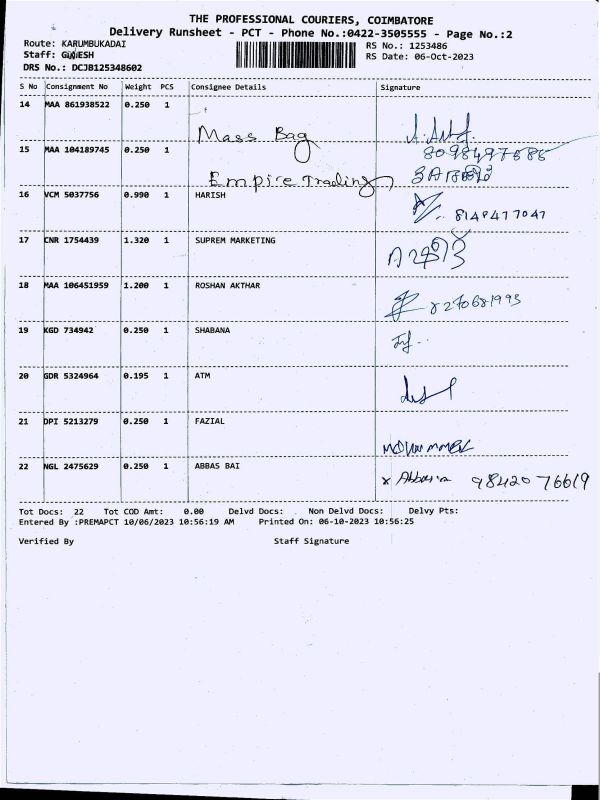 THE PROFESSIONAL COURIERS, COIMBATORE
Delivery Runsheet - PCT - Phone No.:0422-3505555 - Page No.:2
Route: KARUMBUKADAI
RS No.: 1253486
Staff:
RS Date: 06-Oct-2023
DRS No.: DCJB125348602
S No Consignment No Weight PCS Consignee Details Signature
14 MAA 861938522 0.250 1
Mass Bag
15 MAA 104189745 0.250 1
Empire Trading
16 VCM 5037756 0.990 1 HARISH
8148477047
17 CNR 1754439 1.320 1 SUPREM MARKETING
18 MAA 106451959 1.200 1 ROSHAN AKTHAR
19 KGD 734942 0.250 1 SHABANA
20 GDR 5324964 0.195 1 ATM
21 DPI 5213279 0.250 1 FAZIAL
22 NGL 2475629 0.250 1 ABBAS BAI
9842076619
Tot Docs: 22 Tot COD Amt: 0.00 Delvd Docs: Non Delvd Docs: Delvy Pts:
Entered By :PREMAPCT 10/06/2023 10:56:19 AM Printed On: 06-10-2023 10:56:25
Verified By Staff Signature